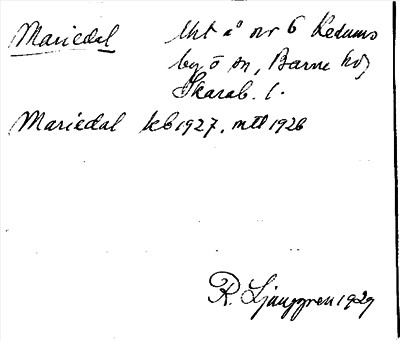 Mariedal lht å nr 6 Kedums
by ö sn, Barne hd,
Skarab. l.
Mariedal kb 1927, mtl 1926
R. Ljunggren 1929